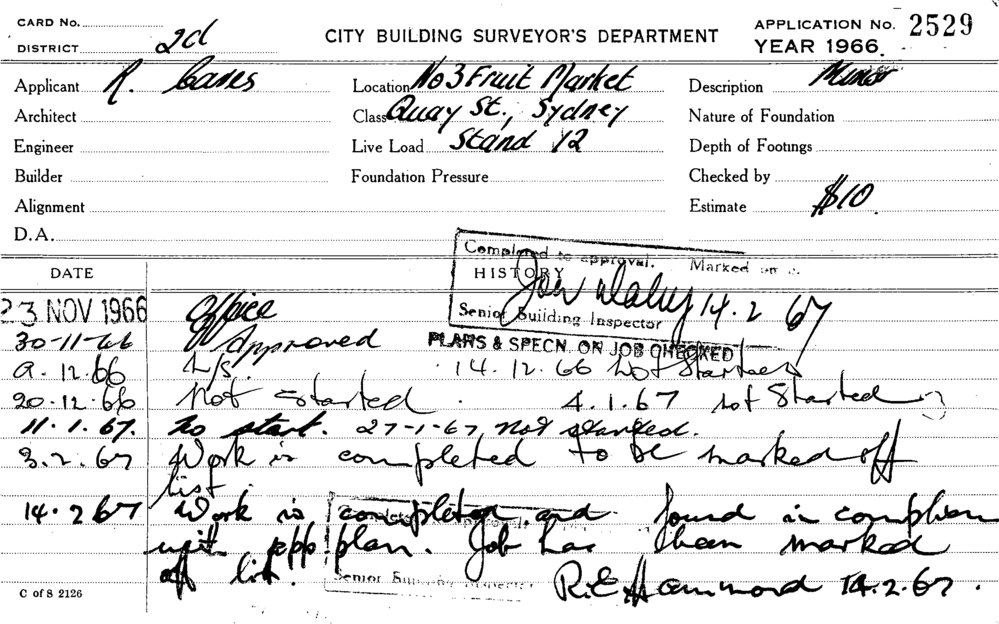 CARD No.
DISTRICT 2d
CITY BUILDING SURVEYOR'S DEPARTMENT
APPLICATION No. 2529
YEAR 1966.
Applicant R.
Location No 3 Fruit Market
Description Minor
Architect
Class Quay St., Sydney
Nature of Foundation
Engineer
Live Load Stand 12
Depth of Footings
Builder
Foundation Pressure
Checked by
Alignment
Estimate $10.
D.A.
Completed to approval. Marked
DATE
HISTORY
23 NOV 1966 Office
14.2.67
Senior Building Inspector
30-11-66 Approved
PLANS & SPECN. ON JOB CHECKED
9.12.66 L/S. 14.12.66 Not Started
20.12.66 Not Started. 4.1.67 not Started
11.1.67. No start. 27-1-67 not started.
3.2.67 Work is completed to be marked off
list.
14.2.67 Work is completed and found in
with app plan. Job has been marked
off list.
Senior Building Inspector
R.E. Hammond 14.2.67.
C of S 2126